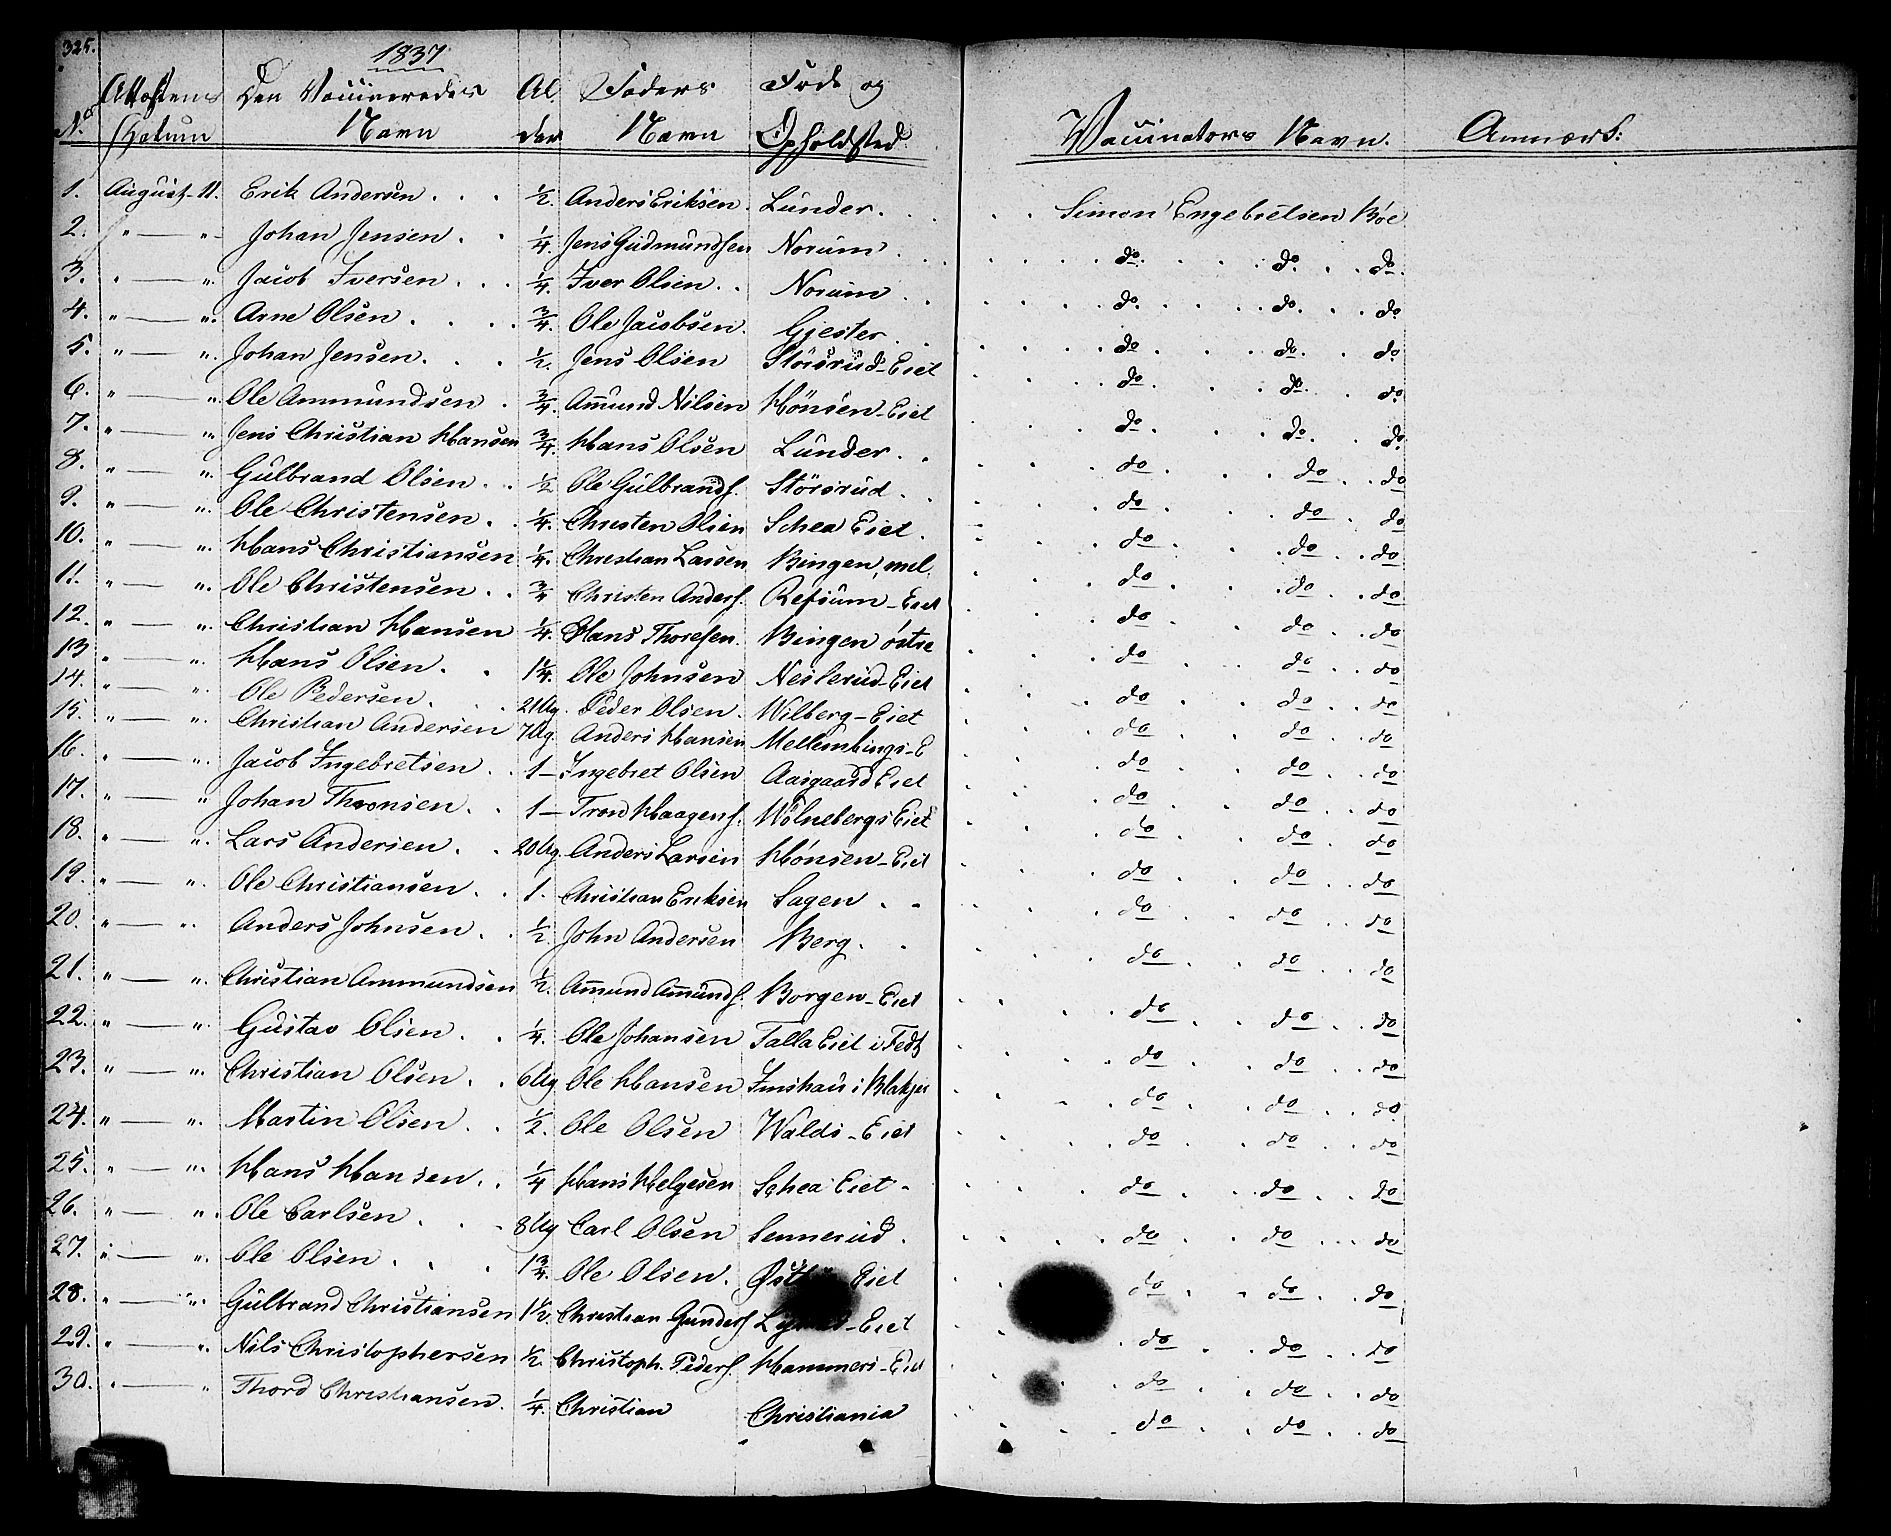 325.
1837
No Attestens Datum Den Vaccineredes Navn Alder Faders Navn Føde og Opholdsted Vaccinators Navn. Anmærk:
1. August 11. Erik Andersen . . . ½. Anders Eriksen. Lunder. . . . . Simen Engebretsen Böe
2. " — " Johan Jensen . . ¼. Jens Gudmundsen Norum . . . do. . . do. . . do.
3. " — " Jacob Iversen . . . ¼. Iver Olsen . . Norum . . do. . . do. . . do
4. " — " Arne Olsen . . . . ¾. Ole Jacobsen. Gjester . . do . . do. . do
5. " — " Johan Jensen. . . ½. Jens Olsen Störsrud-Eiet do . . do. . do
6. " — " Ole Ammundsen . ¾. Amund Nilsen Hönsen-Eiet do . . do. . do
7. " — " Jens Christian Hansen ¾. Hans Olsen Lunder. . do . . do. . do
8. " — " Gulbrand Olsen . . ½ Ole Gulbrands. Störsrud . . do . . do . . do
9. " — " Ole Christensen . . ¼. Christen Olsen Schea Eiet . do . . do . do
10. " — " Hans Christiansen ¼. Christian Larsen Bingen, mel. do . . do . . do
11. " — " Ole Christensen . . ¾ Christen Anders. Refsum-Eiet do . . do . . do
12. " — " Christian Hansen ¼. Hans Thoresen. Bingen östre do . . do . . do
13 " — " Hans Olsen . . 1¼. Ole Johnsen Neslerud-Eiet do . . do . . do
14. " — " Ole Pedersen . . . 21 Ug. Peder Olsen. Wilberg-Eiet do . . do . . do
15. " — " Christian Andersen 7 Ug. Anders Hansen Mellembings-E do . . do . . do
16. " — " Jacob Ingebretsen . . 1 — Ingebret Olsen Aasgaard Eiet do . . do . . do
17. " — " Johan Thronsen . . 1 — Tron Haagens. Wölnebergs Eiet do . . do . . do
18. " — " Lars Andersen . . 20 Ug. Anders Larsen Hönsen-Eiet do . . do . . do
19. " — " Ole Christiansen . . 1. Christian Eriksen Sagen . . do . . do . . do
20. " — " Anders Johnsen . . ½. John Andersen Berg . . do . . do . . do
21. " — " Christian Ammundsen ½. Amund Amunds. Borgen-Eiet do . . do . . do
22. " — " Gustav Olsen . . ¼. Ole Johansen Talla Eiet i Fedt do . . do . . do
23. " — " Christian Olsen . . 6 Ug Ole Hansen i Blakjer do . . do . . do
24. " — " Martin Olsen . . ½. Ole Olsen Walds-Eiet do . . do . . do
25. " — " Hans Hansen . . ¼ Hans Helgesen Schea Eiet - do . . do . . do
26. " — " Ole Carlsen . . . 8 Ug Carl Olsen Sennerud . do . . do . . do
27. " — " Ole Olsen . . . 1¾. Ole Olsen. Eiet do . . do . . do
28. " — " Gulbrand Christiansen 1½. Christian Gunders -Eiet do . . do . . do
29. " — " Nils Christophersen ½. Christoph. Peders. Hammers-Eiet do . . do . . do
30. " — " Thord Christiansen. ¼. Christian Christiania do . . do . . do
do . . do . . do